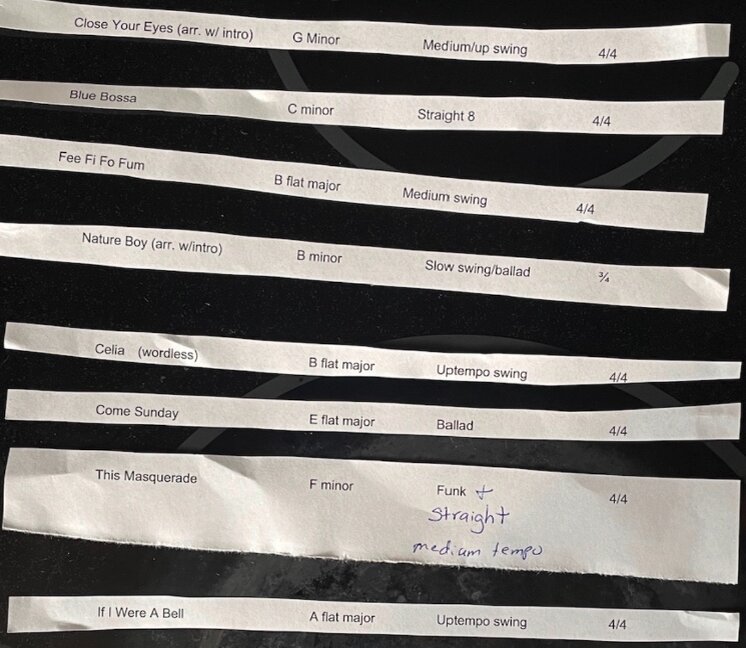 Close Your Eyes (arr. w/ intro) G Minor Medium/up swing 4/4
Blue Bossa C minor Straight 8 4/4
Fee Fi Fo Fum B flat major Medium swing 4/4
Nature Boy (arr. w/intro) B minor Slow swing/ballad ¾
Celia (wordless) B flat major Uptempo swing 4/4
Come Sunday E flat major Ballad 4/4
This Masquerade F minor Funk + 4/4
Straight
medium tempo
If I Were A Bell A flat major Uptempo swing 4/4